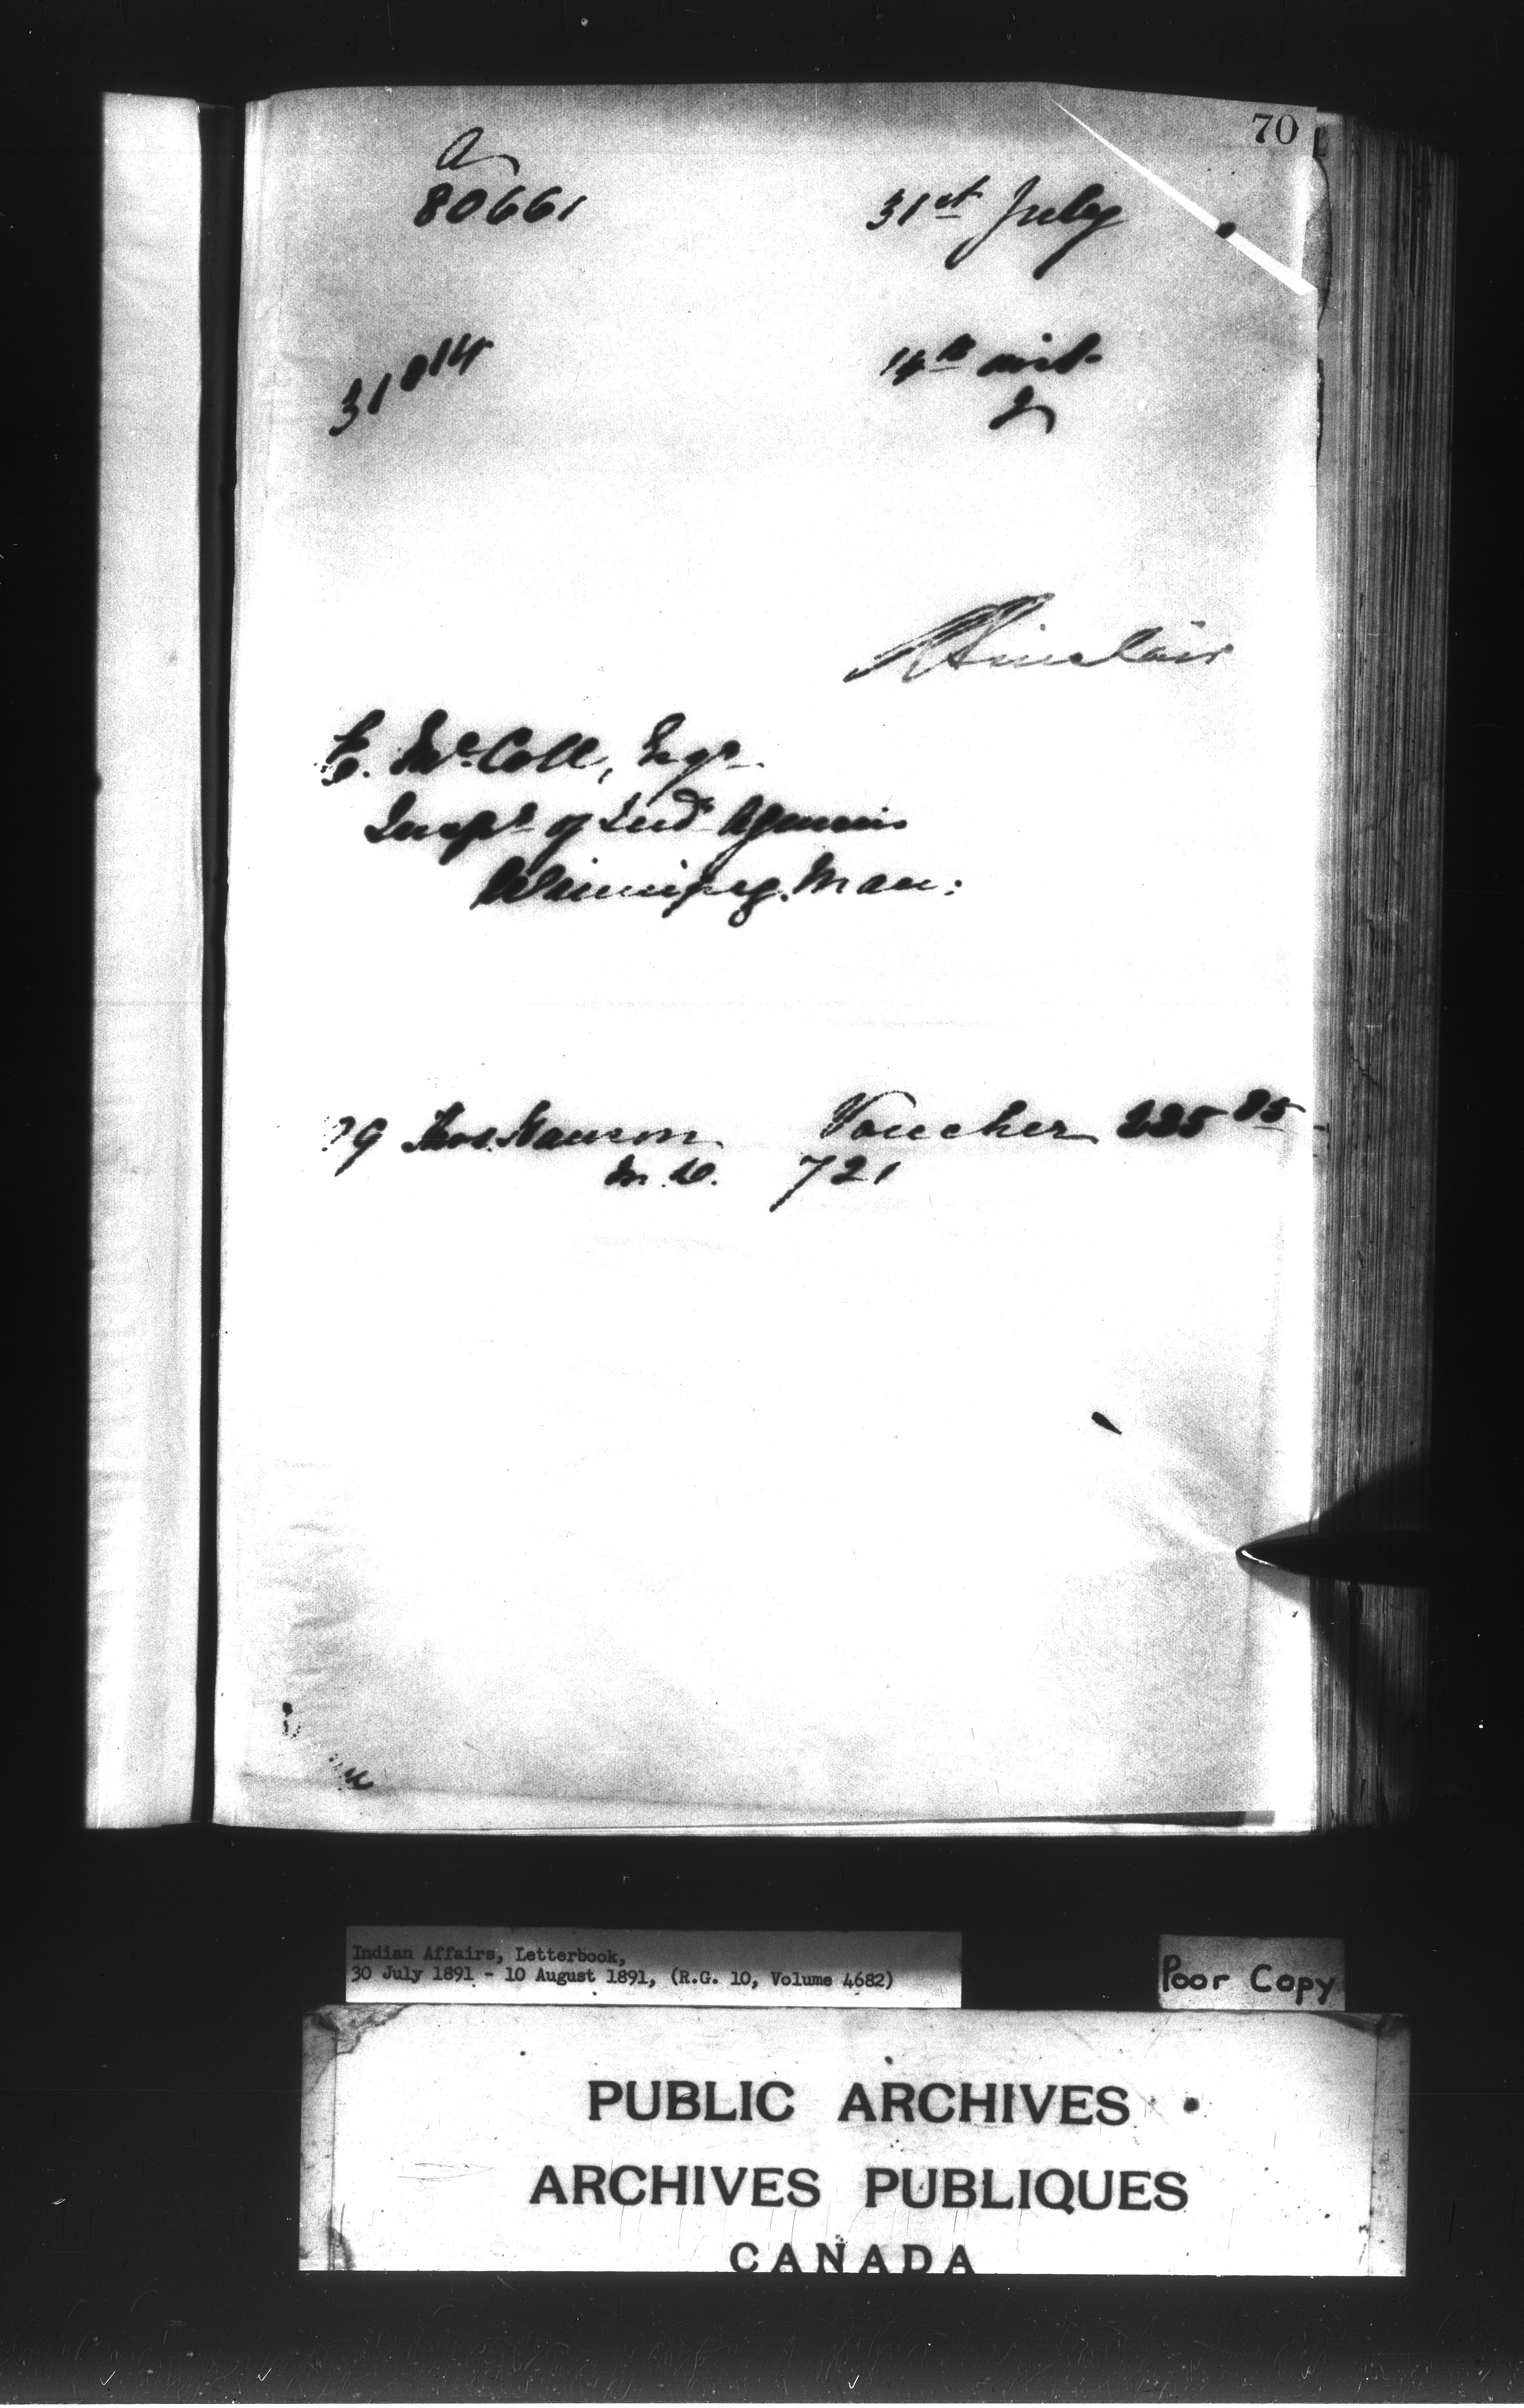 70
a
80661 31st July
31814 14th inst
R Sinclair
E. McColl, Esqr
Inspr of Indn Agencies
Winnipeg. Man:
79 Thos. Hanson Voucher 225 85
M.D. 721
Indian Affairs, Letterbook,
30 July 1891 - 10 August 1891, (R.G. 10, Volume 4682)
Poor Copy
PUBLIC ARCHIVES
ARCHIVES PUBLIQUES
CANADA